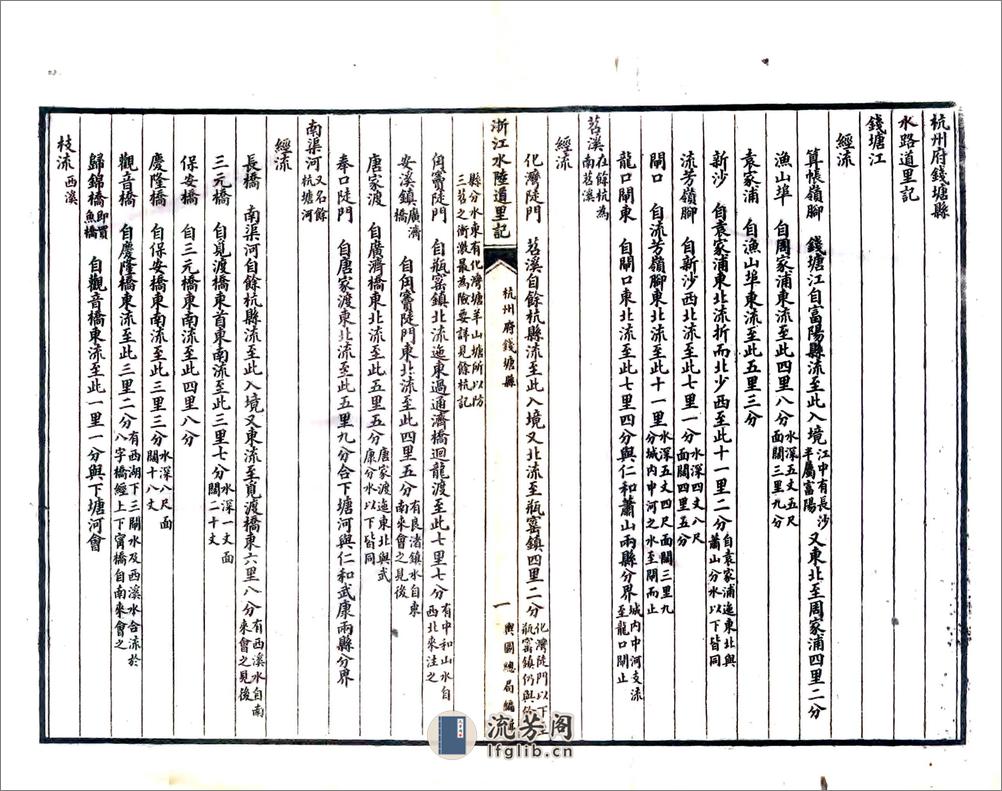 杭州府錢塘縣
水路道里記
錢塘江
經流
算帳嶺腳　錢塘江自富陽縣流至此入境江中有長沙半屬富陽又東北至周家浦四里二分
漁山埠　自周家浦東流至此四里八分水深五丈五尺面闊三里九分
袁家浦　自漁山埠東流至此五里三分
新沙　自袁家浦東北流折而北少西至此十一里二分自袁家浦迤東北與蕭山分水以下皆同
流芳嶺腳　自新沙西北流至此七里一分水深四丈八尺面闊四里五分
閘口　自流芳嶺腳東北流至此十一里水深五丈四尺面闊三里九分城內中河之水至閘而止
龍口閘東　自閘口東北流至此七里四分與仁和蕭山兩縣分界城內中河支流至龍口閘止
苕溪在餘杭為南苕溪
經流
化灣陡門　苕溪自餘杭縣流至此入境又北流至瓶窰鎮四里二分化灣陡門以下至瓶窰鎮仍與餘
浙江水陸道里記　杭州府錢塘縣　一　輿圖總局編
縣分水東有化灣塘羊山塘所以防三苕之衝激最為險要詳見餘杭記
角竇陡門　自瓶窰鎮北流迤東過通濟橋迴龍渡至此七里七分有中和山水自西北來注之
安溪鎮廣濟橋　自角竇陡門東北流至此四里五分有良渚鎮水自東南來會之見後
唐家渡　自廣濟橋東北流至此五里五分唐家渡迤東北與武康分水以下皆同
奉口陡門　自唐家渡東北流至此五里九分合下塘河與仁和武康兩縣分界
南渠河又名餘杭塘河
經流
長橋　南渠河自餘杭縣流至此入境又東流至覓渡橋東六里八分有西溪水自南來會之見後
三元橋　自覓渡橋東首東南流至此三里七分水深一丈面闊二十丈
保安橋　自三元橋東南流至此四里八分
慶隆橋　自保安橋東南流至此三里三分水深八尺面闊十八丈
觀音橋　自慶隆橋東流至此三里二分有西湖下三閘水及西溪水合流於八字橋經上下甯橋自南來會之
歸錦橋即賣魚橋　自觀音橋東流至此一里一分與下塘河會
枝流西溪
流芳阁
lfglib.cn